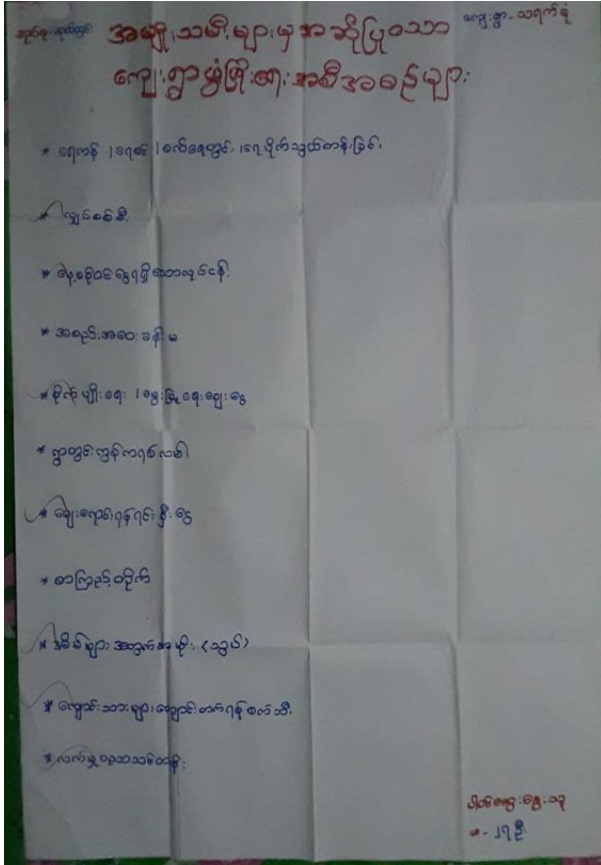 အုပ်စု-ဆယ်တွင်း
ကျေးရွာ-သရက်ခုံ
အမျိုးသမီးများမှအဆိုပြုသော
ကျေးရွာဖွံ့ဖြိုးရေးအစီအစဉ်များ
* ရေကန် ၊ရေစင် ၊စက်ရေတွင်း ၊ရေပိုက်သွယ်တန်းခြင်း
* လျှပ်စစ်မီး
* နေ့စဉ်ဝင်ငွေရရှိသောလုပ်ငန်း
* အစည်းအဝေးခန်းမ
* စိုက်ပျိုးရေး ၊မွေးမြူရေးချေးငွေ
* ရွာတွင်းကွန်ကရစ်လမ်း
* ချေးငွေ ရန်ရင်းနှီးငွေ
* စာကြည့်တိုက်
* အိမ်များအတွက်အမိုး (သွပ်)
* ကျောင်းသားများကျောင်းတက်ရန်စက်ဘီး
* လက်မှုပညာသင်တန်း
ပါဝင်ဆွေးနွေးသူ
မ - ၂၇ ဦး